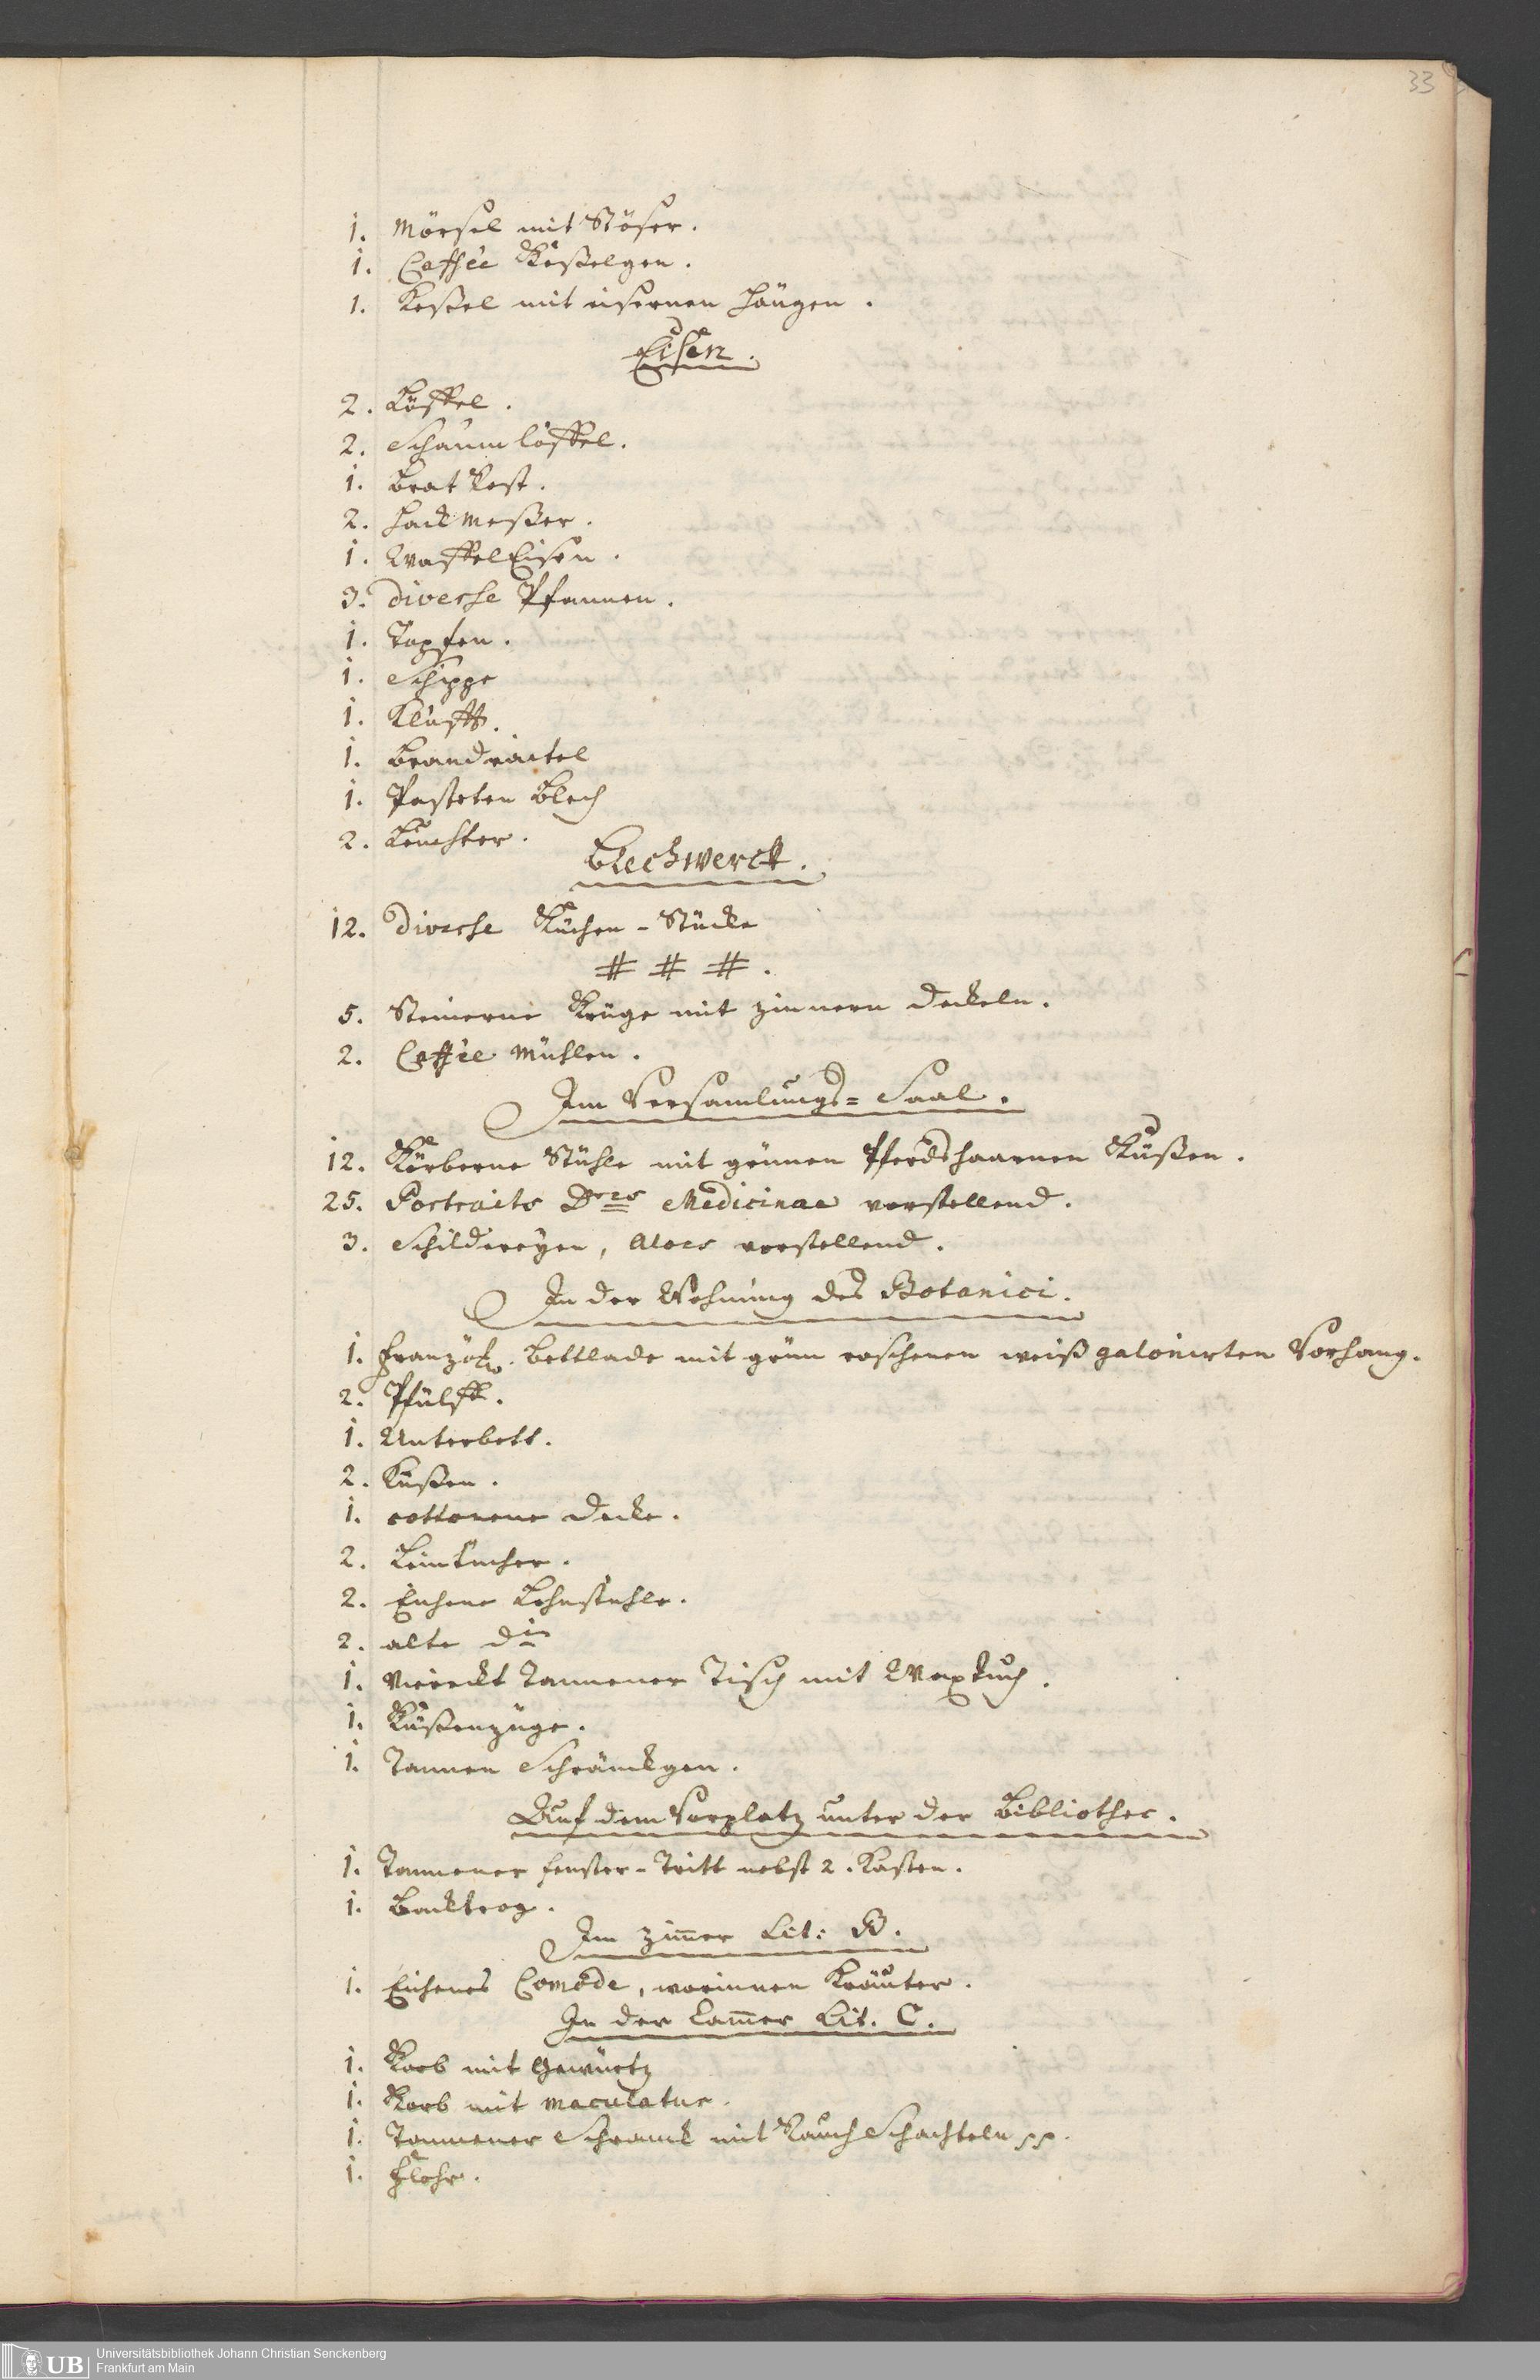 33
1. Mörsel mit Stöser.
1. Caffée Keßelgen.
1. Keßel mit eisernen Hängen.
Eisen.
2. Löffel.
2. Schaum löffel.
1. Brat Rost.
2. Hack Meßer.
1. WaffelEisen.
3. diverse Pfannen.
1.
1. Schippe
1. Klufft.
1. Brandraitel
1. Pasteten Blech
2. Leuchter.
Blechwerck.
12. Diverse Küchen-Stücke
# # #.
5. Steinerne Krüge mit zinnern Deckeln.
2. Caffée Mühlen.
Im Versamlungs=Saal.
12. Körberne Stühle mit grünen Pferdshaarnen Küßen.
25. Portraits Dres Medicinae vorstellend.
3. Schildereyen, Aloes vorstellend.
In der Wohnung des Botanici.
1. Französ. Bettlade mit grün raschenen weiß galonirten Vorhang.
2. Pfülff.
1. Unterbett.
2. Küßen.
1. cottonene Decke.
2. Leintücher.
2. Eichene Lehnstühle.
2. alte
1. Viereckt Tannener Tisch mit Waxtuch.
1. Küßenzüge.
1. Tannen Schränckgen.
Auf dem Vorplatz unter der Bibliothec.
1. Tannener Fenster-Tritt nebst 2. Kasten.
1. Backtrog.
Im Zimer Lit: B.
1. Eichenes Comode, worinnen Kräuter.
In der Camer Lit. C.
1. Korb mit Gewürtz
1. Korb mit Maculatur.
1. Tannener Schranck mit Rauch Schachteln pp.
1. Flohr.
UB Universitätsbibliothek Johann Christian Senckenberg
Frankfurt am Main